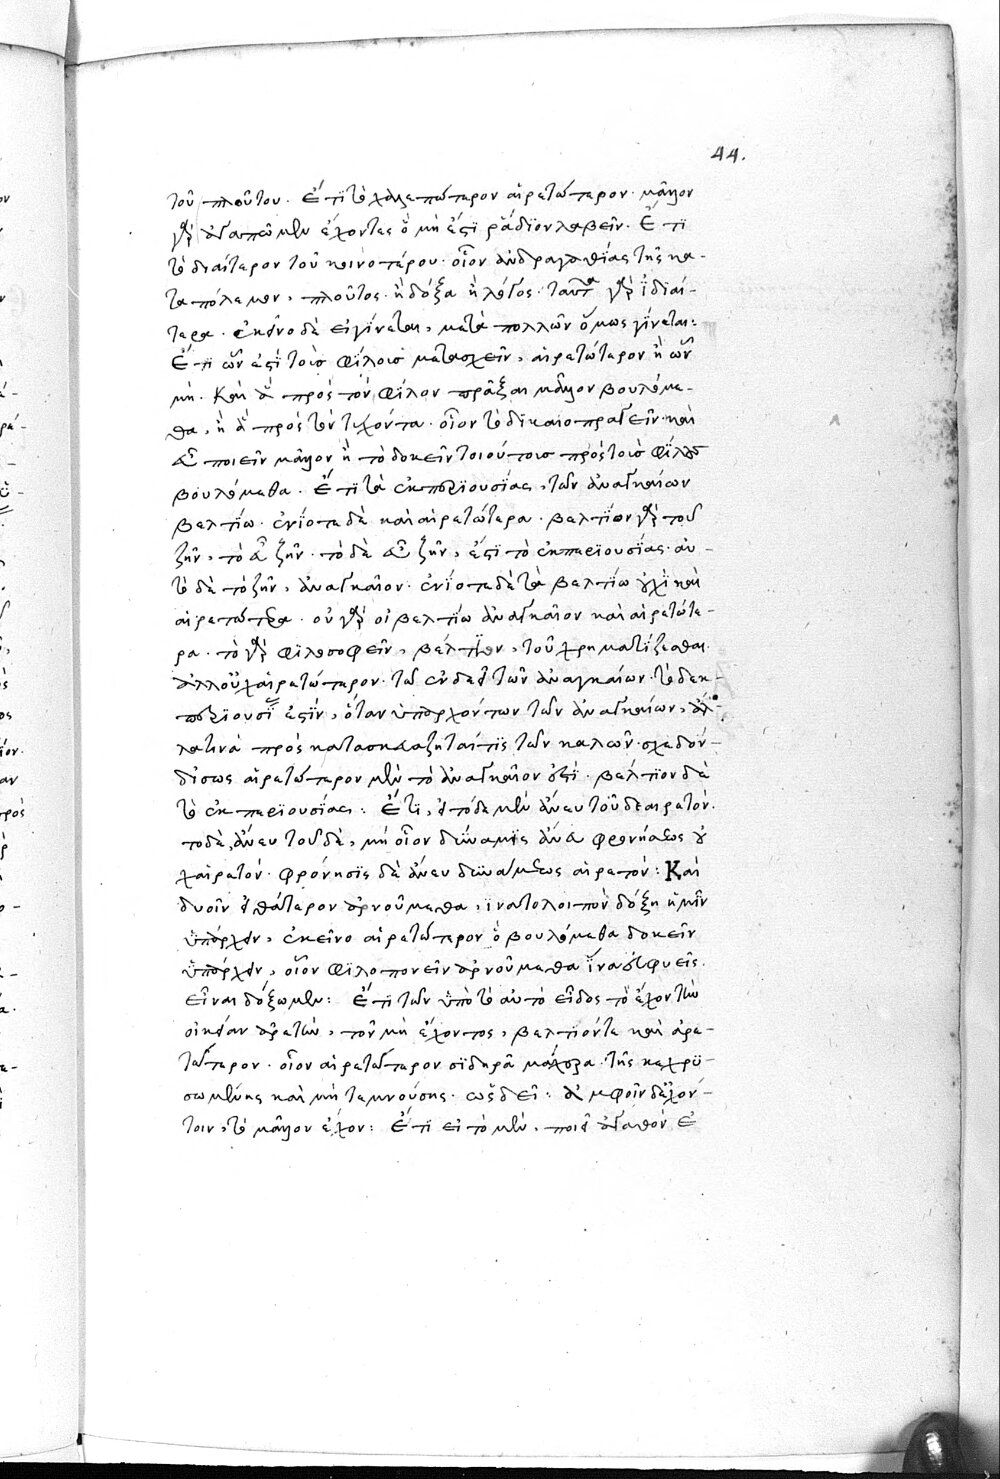 44.
τοῦ πλούτου. Ἔτι τὸ χαλεπώτερον αἱρετώτερον. μᾶλλον
γὰρ ἀγαπῶμεν ἔχοντες ὃ μὴ ἔστι ῥάδιον λαβεῖν. Ἔτι
τὸ ἰδιαίτερον τοῦ κοινοτέρου. οἷον ἀνδραγαθίας τῆς κα-
τα πόλεμον, πλοῦτος. ἢ δόξα ἢ λόγος. ταῦτα γὰρ ἰδιαί-
τερα. ἐκεῖνο δὲ εἰ γίνεται, μετὰ πολλῶν ὅμως γίνεται:
Ἔτι ὧν ἐστὶ τοῖς φίλοις μετασχεῖν, αἱρετώτερον ἢ ὧν
μή. Καὶ ἃ πρὸς τὸν φίλον πρᾶξαι μᾶλλον βουλόμε-
θα, ἢ ἃ πρὸς τὸν τυχόντα. οἷον τὸ δικαιοπραγεῖν καὶ
εὖ ποιεῖν μᾶλλον ἢ τὸ δοκεῖν τοιούτοις πρὸς τοὺς φίλους
βουλόμεθα. Ἔτι τὰ ἐκ περιουσίας, τῶν ἀναγκαίων
βελτίω. ἐνίοτε δὲ καὶ αἱρετώτερα. βέλτιον γὰρ τοῦ
ζῆν, τὸ εὖ ζῆν. τὸ δὲ εὖ ζῆν, ἐστὶ τὸ ἐκ περιουσίας. αὐ-
τὸ δὲ τὸ ζῆν, ἀναγκαῖον. ἐνίοτε δὲ τὰ βελτίω οὐχὶ καὶ
αἱρετώτερα. οὐ γὰρ εἰ βελτίω ἀναγκαῖον καὶ αἱρετώτε-
ρα. τὸ γὰρ φιλοσοφεῖν, βέλτιον, τοῦ χρηματίζεσθαι.
ἀλλ' οὐχ αἱρετώτερον. τῷ ἐνδεεῖ τῶν ἀναγκαίων. τὸ δ' ἐκ
περιουσίας ἐστὶν, ὅταν ὑπαρχόντων τῶν ἀναγκαίων, ἄλ-
λα τινὰ προς κατασκευάζηταί τις τῶν καλῶν. σχεδὸν
δ' ἴσως αἱρετώτερον μὲν τὸ ἀναγκαῖον ἐστί. βέλτιον δὲ
τὸ ἐκ περιουσίας: Ἔτι, εἰ τόδε μὲν ἄνευ τοῦδε αἱρετόν.
τοδὲ, ἄνευ τοῦδε, μή οἷον δύναμις ἄνευ φρονήσεως οὐ
χ' αἱρετόν. φρόνησις δὲ ἄνευ δυνάμεως αἱρετόν: Καὶ
δυοῖν εἰ θάτερον ἀρνούμεθα, ἵνα τὸ λοιπὸν δόξῃ ἡμῖν
ὑπάρχειν, ἐκεῖνο αἱρετώτερον ὃ βουλόμεθα δοκεῖν
ὑπάρχειν, οἷον φιλοπονεῖν ἀρνούμεθα ἵνα εὐφυεῖς
εἶναι δόξωμεν: Ἔτι τῶν ὑπὸ τὸ αὐτὸ εἶδος τὸ ἔχον τὴν
οἰκείαν ἀρετὴν, τοῦ μὴ ἔχοντος, βέλτιόν τε καὶ αἱρε-
τώτερον. οἷον αἱρετώτερον σιδηρᾶ μάχαιρα. τῆς κεχρυ-
σωμένης καὶ μὴ τεμνούσης. ὡς δεῖ: ἀμφοῖν δ' ἐχόν-
τοιν, τὸ μᾶλλον ἔχον: Ἔτι εἰ τὸ μὲν, ποιεῖ ἀγαθὸν ἐ